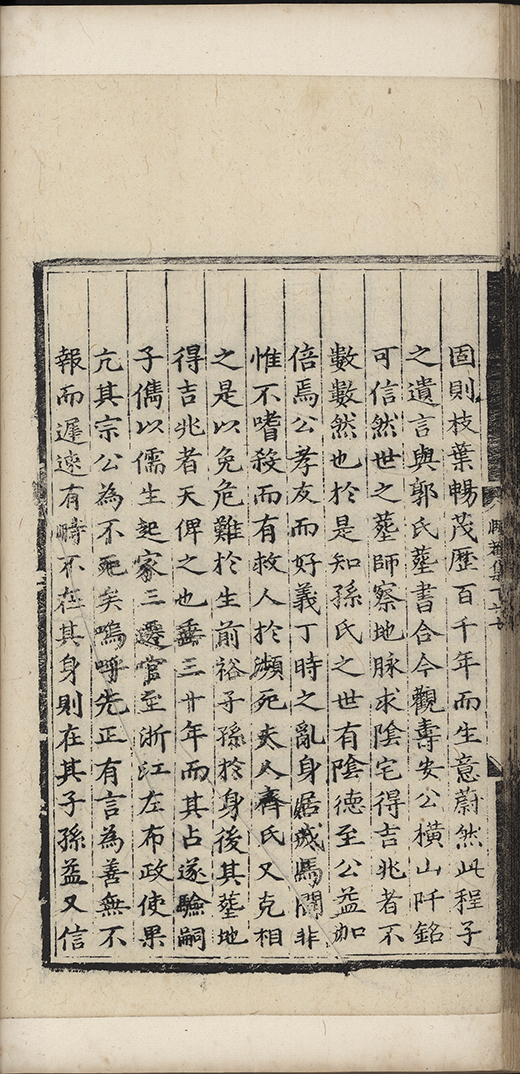 固則枝葉暢茂歷百千年而生意蔚然此程子
之遺言與郭氏塟書合今觀壽安公橫山阡銘
可信然世之塟師察地脉求陰宅得吉兆者不
數數然也於是知孫氏之世有陰德至公益加
倍焉公孝友而好義丁時之亂身居戎馬間非
惟不嗜殺而有救人於瀕死夫人齊氏又克相
之是以免危難於生前裕子孫於身後其塟地
得吉兆者天俾之也垂三廿年而其占遂驗嗣
子儁以儒生起家三遷官至浙江左布政使果
亢其宗公為不死矣嗚呼先正有言為善無不
報而遲速有時不在其身則在其子孫益又信